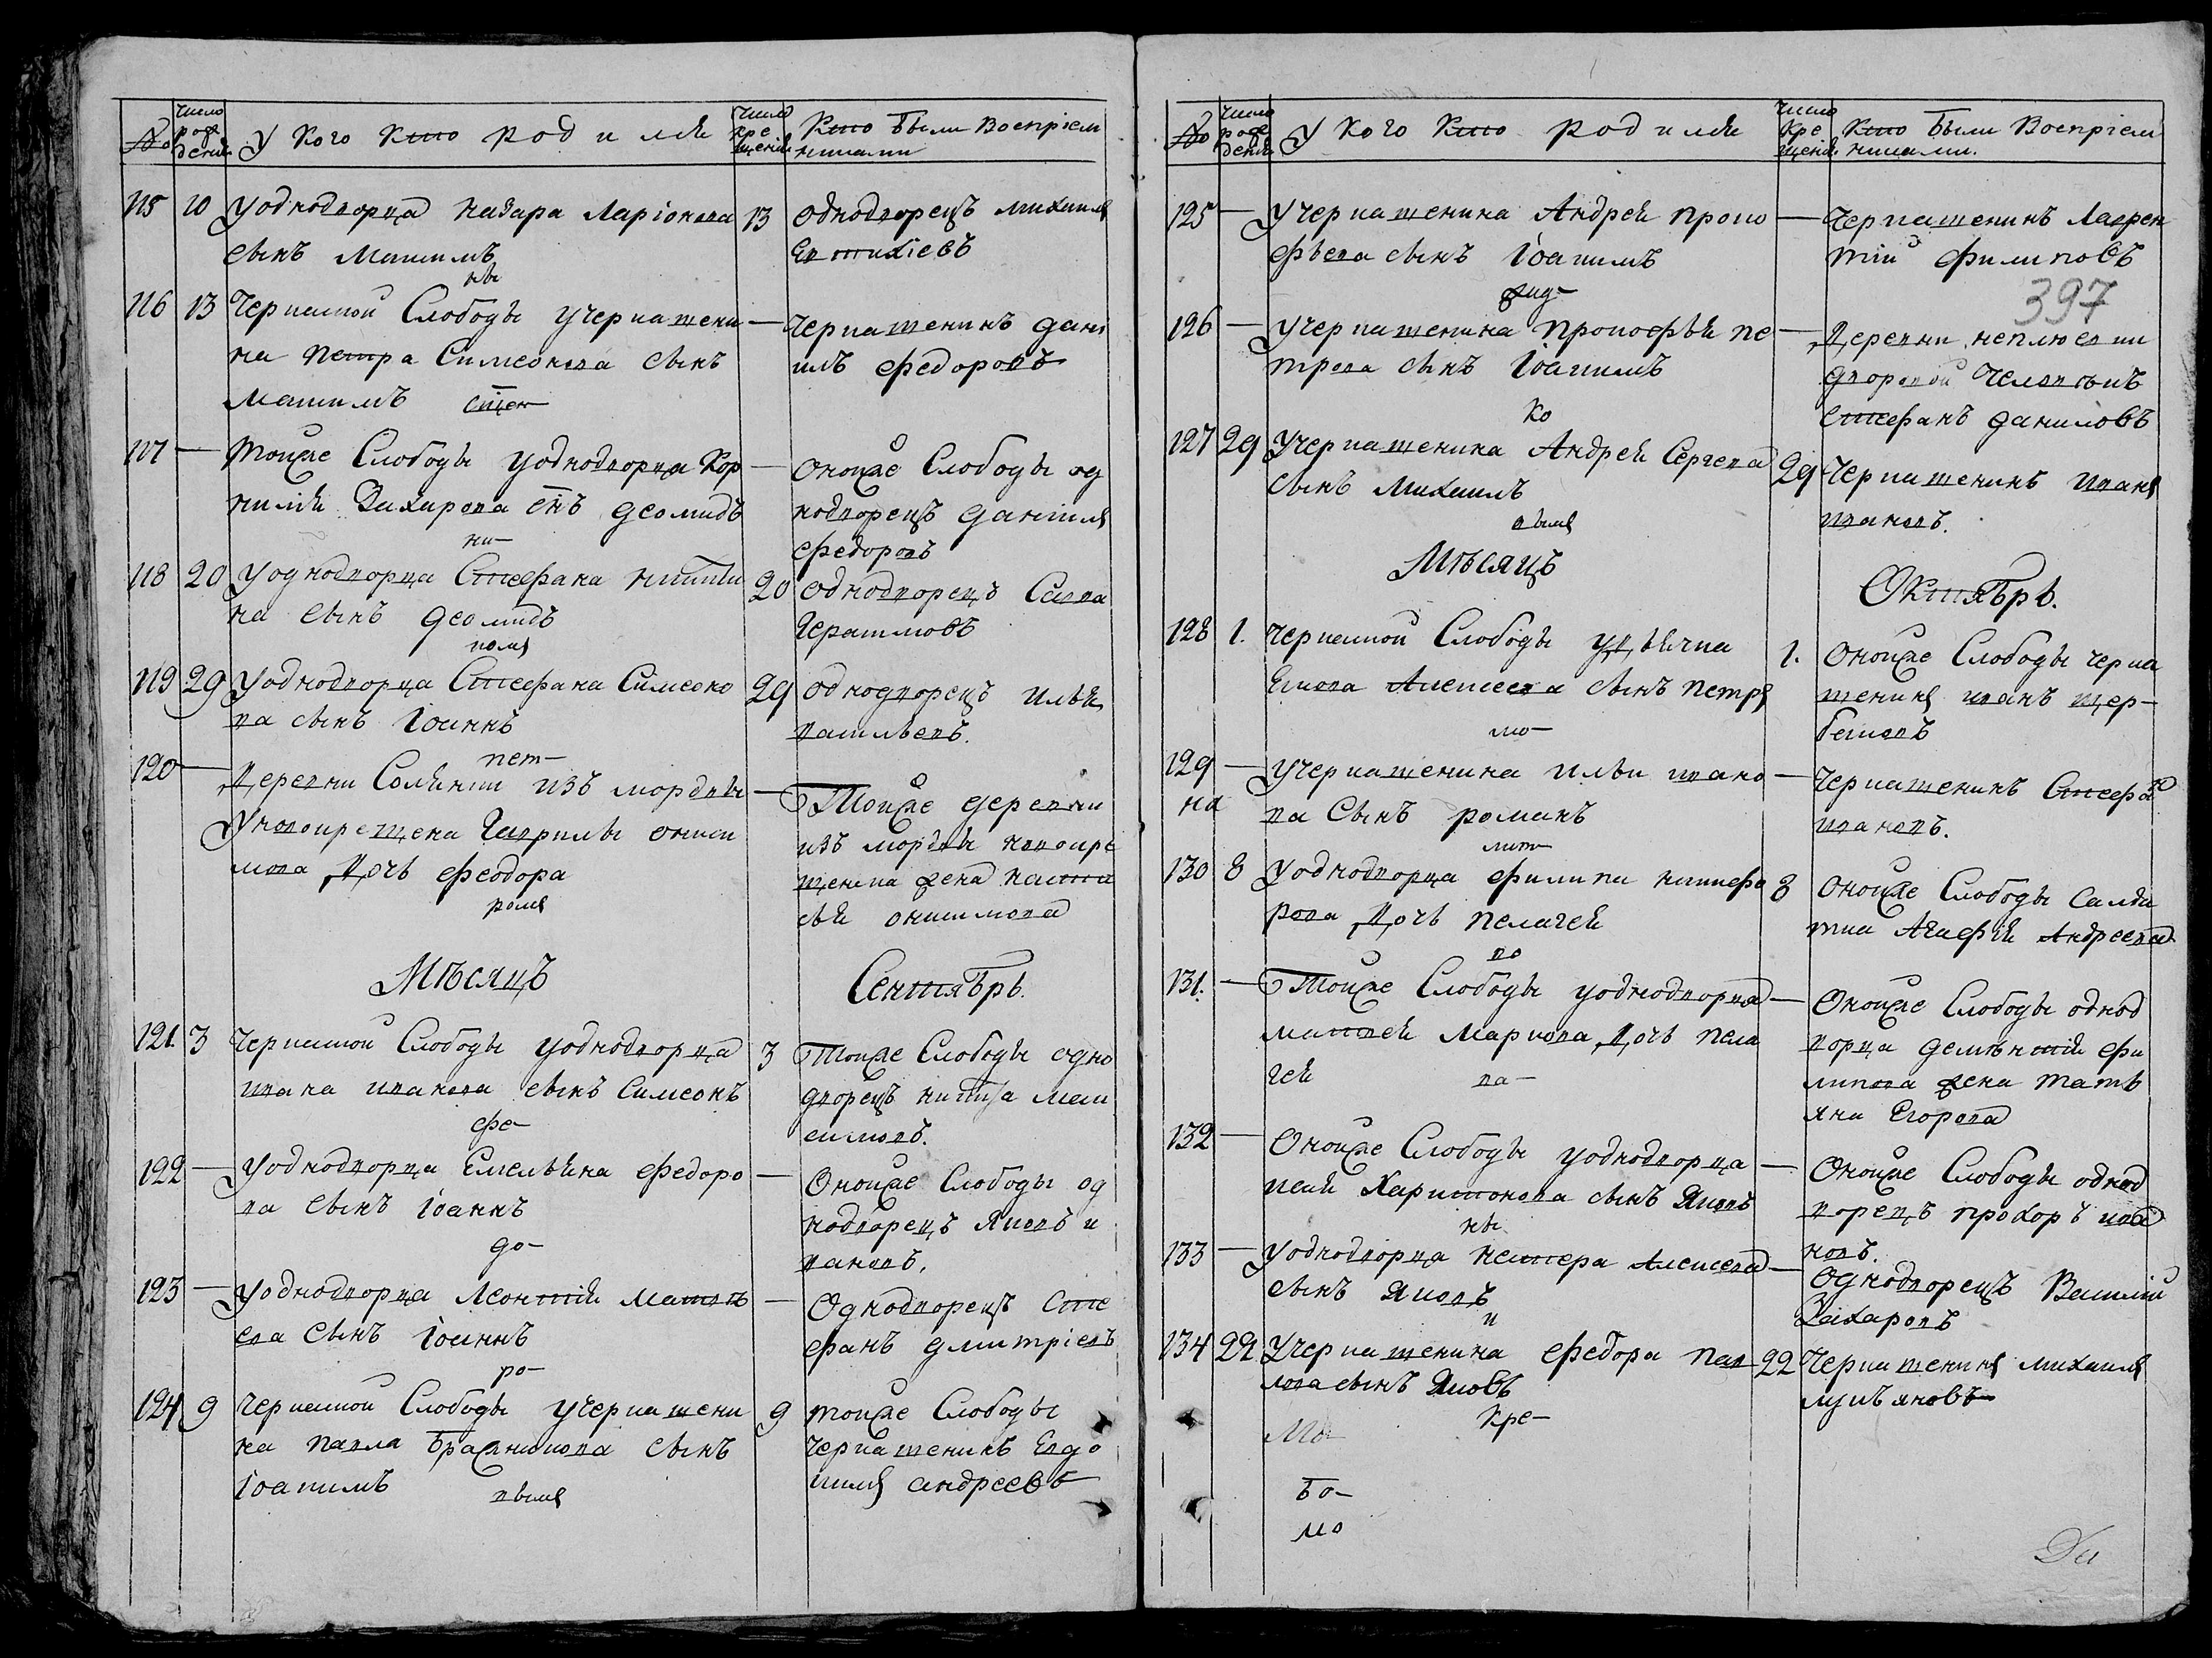 №
число рождения
У кого кто родился
число крещения
кто были восприемниками
115 10 У однодворца Назара Ларіонова
сынъ Максимъ
13 однодворецъ Михаилъ
Евтихіевъ
ны
116 13 Черкаской Слободы у черкашени
на Петра Симеонова сынъ
Максимъ
— черкашенинъ Дані
илъ Федоровъ
сщен
117 — Тойже Слободы у однодворца Кор
нилія Захарова снъ Деомидъ
— онойже Слободы од
нодворецъ Даніилъ
Федоровъ
ни
118 20 У однодворца Стефана Никити
на сынъ Деомидъ
20 однодворецъ Савва
Герасимовъ
номъ
119 29 У однодворца Стефана Симеоно
ва сынъ Іоаннъ
29 однодворецъ Илья
Васильевъ.
пет
120 — Деревни Солянки изъ мордвы
У новокрещена Гаврилы Ониси
мова дочь Феодора
— Тойже деревни
изъ мордвы новокре
щенна жена Наста
сья Онисимова
ромъ
Мѣсяцъ Сентябрь.
121. 3 Черкаской Слободы у однодворца
Ивана Иванова сынъ Симеонъ
3 Тойже Слободы одно
дворецъ Никита Мак
симовъ.
фе
122 — У однодворца Емельяна Федоро
ва сынъ Іоаннъ
— Онойже Слободы од
нодворецъ Яковъ И
вановъ.
до
123 — У однодворца Леонтія Матвѣ
ева сынъ Іоаннъ
— Однодворецъ Сте
фанъ Дмитріевъ
ро
124 9 Черкаской Слободы у черкашени
на Павла Бражникова сынъ
Іоакимъ
9 Тойже Слободы
черкашенинъ Евдо
кимъ Андреевъ
вымъ
№
число рождения
У кого кто родился
число крещения
кто были восприемниками.
125 — У черкашенина Андрея Проко
фьева сынъ Іоакимъ
— Черкашенинъ Лаврен
тій Филиповъ
397
126 — У черкашенина Прокофья Пе
трова сынъ Іоакимъ
— Деревни Неплюевки
дворовой человѣкъ
Стефанъ Даниловъ
ко
127 29 У черкашенина Андрея Сергева
сынъ Михаилъ
29 Черкашенинъ Иванъ
Ивановъ.
вымъ
Мѣсяцъ Октябрь.
128 1. Черкаской Слободы у дьячка
Якова Алексеева сынъ Петръ
1. Онойже Слободы черка
шенинъ Иванъ Щер-
баковъ
129 — У черкашенина Ильи Ивано
ва сынъ Романъ
— Черкашенинъ Стефан
Ивановъ.
на
130 8 У однодворца Филипа Никифо
рова дочь Пелагея
8 Онойже Слободы салда
тка Агафія Андреева
по
131. — Тойже Слободы у однодворца
Матвея Маркова дочь Пела
гея
— Онойже Слободы однод
ворца Дементія Фи
липова жена Тать
яна Егорова
ва
132 — Онойже Слободы у однодворца
Исая Харитонова сынъ Яковъ
— Онойже Слободы однод
ворецъ Прохоръ Ива
новъ.
ны
133 — У однодворца Нестера Алексева
сынъ Яковъ
— Однодворецъ Василій
Захаровъ
и
134 22 У черкашенина Федора Пав
лова сынъ Яковъ
22 Черкашенинъ Михаилъ
Лукъяновъ
кре
бо
мо